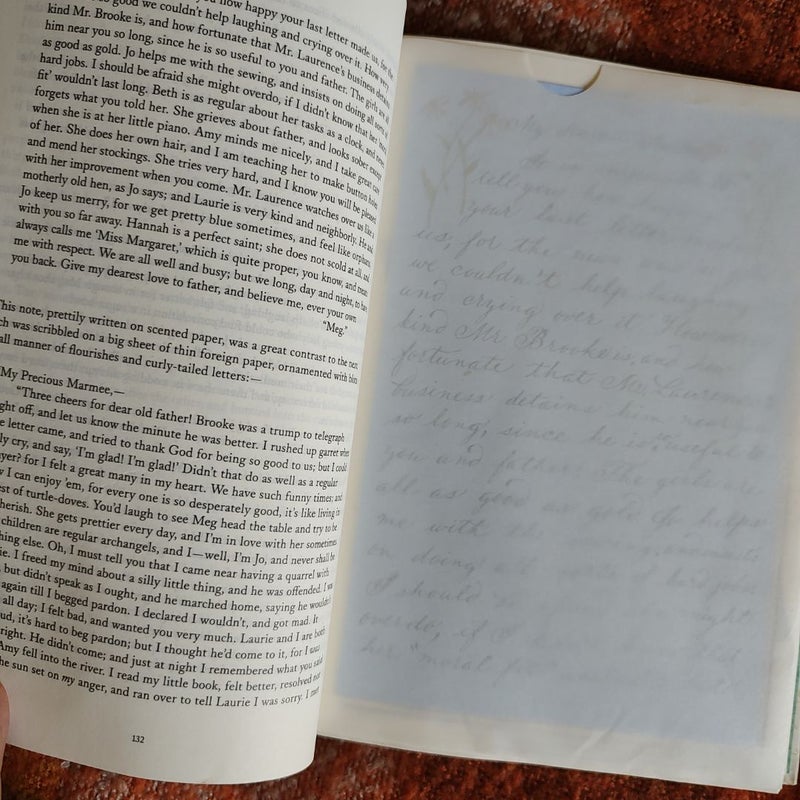 how happy your last letter made us, for the
good we couldn't help laughing and crying over it. How very
kind Mr. Brooke is, and how fortunate that Mr. Laurence's business detains
him near you so long, since he is so useful to you and father. The girls are all
as good as gold. Jo helps me with the sewing, and insists on doing all sorts of
hard jobs. I should be afraid she might overdo, if I didn't know that her 'moral
fit' wouldn't last long. Beth is as regular about her tasks as a clock, and never
forgets what you told her. She grieves about father, and looks sober except
when she is at her little piano. Amy minds me nicely, and I take great care
of her. She does her own hair, and I am teaching her to make button holes
and mend her stockings. She tries very hard, and I know you will be pleased
with her improvement when you come. Mr. Laurence watches over us like a
motherly old hen, as Jo says; and Laurie is very kind and neighborly. He and
Jo keep us merry, for we get pretty blue sometimes, and feel like orphans
with you so far away. Hannah is a perfect saint; she does not scold at all, and
always calls me 'Miss Margaret,' which is quite proper, you know, and treats
me with respect. We are all well and busy; but we long, day and night, to have
you back. Give my dearest love to father, and believe me, ever your own
"Meg."
This note, prettily written on scented paper, was a great contrast to the next
ch was scribbled on a big sheet of thin foreign paper, ornamented with blots
all manner of flourishes and curly-tailed letters:—
"My Precious Marmee,—
"Three cheers for dear old father! Brooke was a trump to telegraph
ght off, and let us know the minute he was better. I rushed up garret when
e letter came, and tried to thank God for being so good to us; but I could
ly cry, and say, 'I'm glad! I'm glad!' Didn't that do as well as a regular
ayer? for I felt a great many in my heart. We have such funny times; and
w I can enjoy 'em, for every one is so desperately good, it's like living in
est of turtle-doves. You'd laugh to see Meg head the table and try to be
herish. She gets prettier every day, and I'm in love with her sometimes
children are regular archangels, and I—well, I'm Jo, and never shall be
hing else. Oh, I must tell you that I came near having a quarrel with
ie. I freed my mind about a silly little thing, and he was offended. I was
, but didn't speak as I ought, and he marched home, saying he wouldn't
again till I begged pardon. I declared I wouldn't, and got mad. It
all day; I felt bad, and wanted you very much. Laurie and I are both
ud, it's hard to beg pardon; but I thought he'd come to it, for I was
right. He didn't come; and just at night I remembered what you said
Amy fell into the river. I read my little book, felt better, resolved not
he sun set on my anger, and ran over to tell Laurie I was sorry. I met
132
My
tell you how
your last letter
us, for the
we couldn't help
and crying over it
kind Mr Brooke is, and
fortunate that Mr. Laurence
business detains him near
so long, since he is useful to
you and father. The girls
all as good as gold. Jo helps
me with
on doing all hard jobs
I should
overdo, if I
her "moral